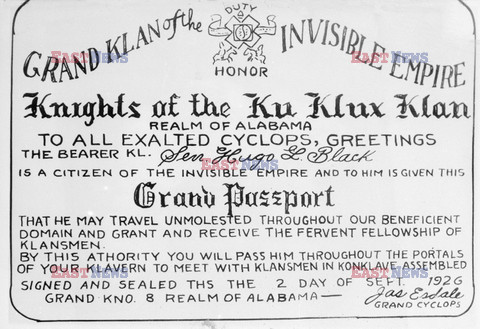 DUTY
&
HONOR
GRAND KLAN of the INVISIBLE EMPIRE
Knights of the Ku Klux Klan
REALM OF ALABAMA
TO ALL EXALTED CYCLOPS, GREETINGS
THE BEARER KL. Sen Hugo L. Black
IS A CITIZEN OF THE INVISIBLE EMPIRE AND TO HIM IS GIVEN THIS
Grand Passport
THAT HE MAY TRAVEL UNMOLESTED THROUGHOUT OUR BENEFICIENT
DOMAIN AND GRANT AND RECEIVE THE FERVENT FELLOWSHIP OF
KLANSMEN.
BY THIS ATHORITY YOU WILL PASS HIM THROUGHOUT THE PORTALS
OF YOUR KLAVERN TO MEET WITH KLANSMEN IN KONKLAVE ASSEMBLED
SIGNED AND SEALED THS THE 2 DAY OF SEPT. 1926
GRAND KNO. 8 REALM OF ALABAMA— Jas Esdale
GRAND CYCLOPS
EASTNEWS
EASTNEWS
EASTNEWS
EASTNEWS
EASTNEWS
EASTNEWS
EASTNEWS